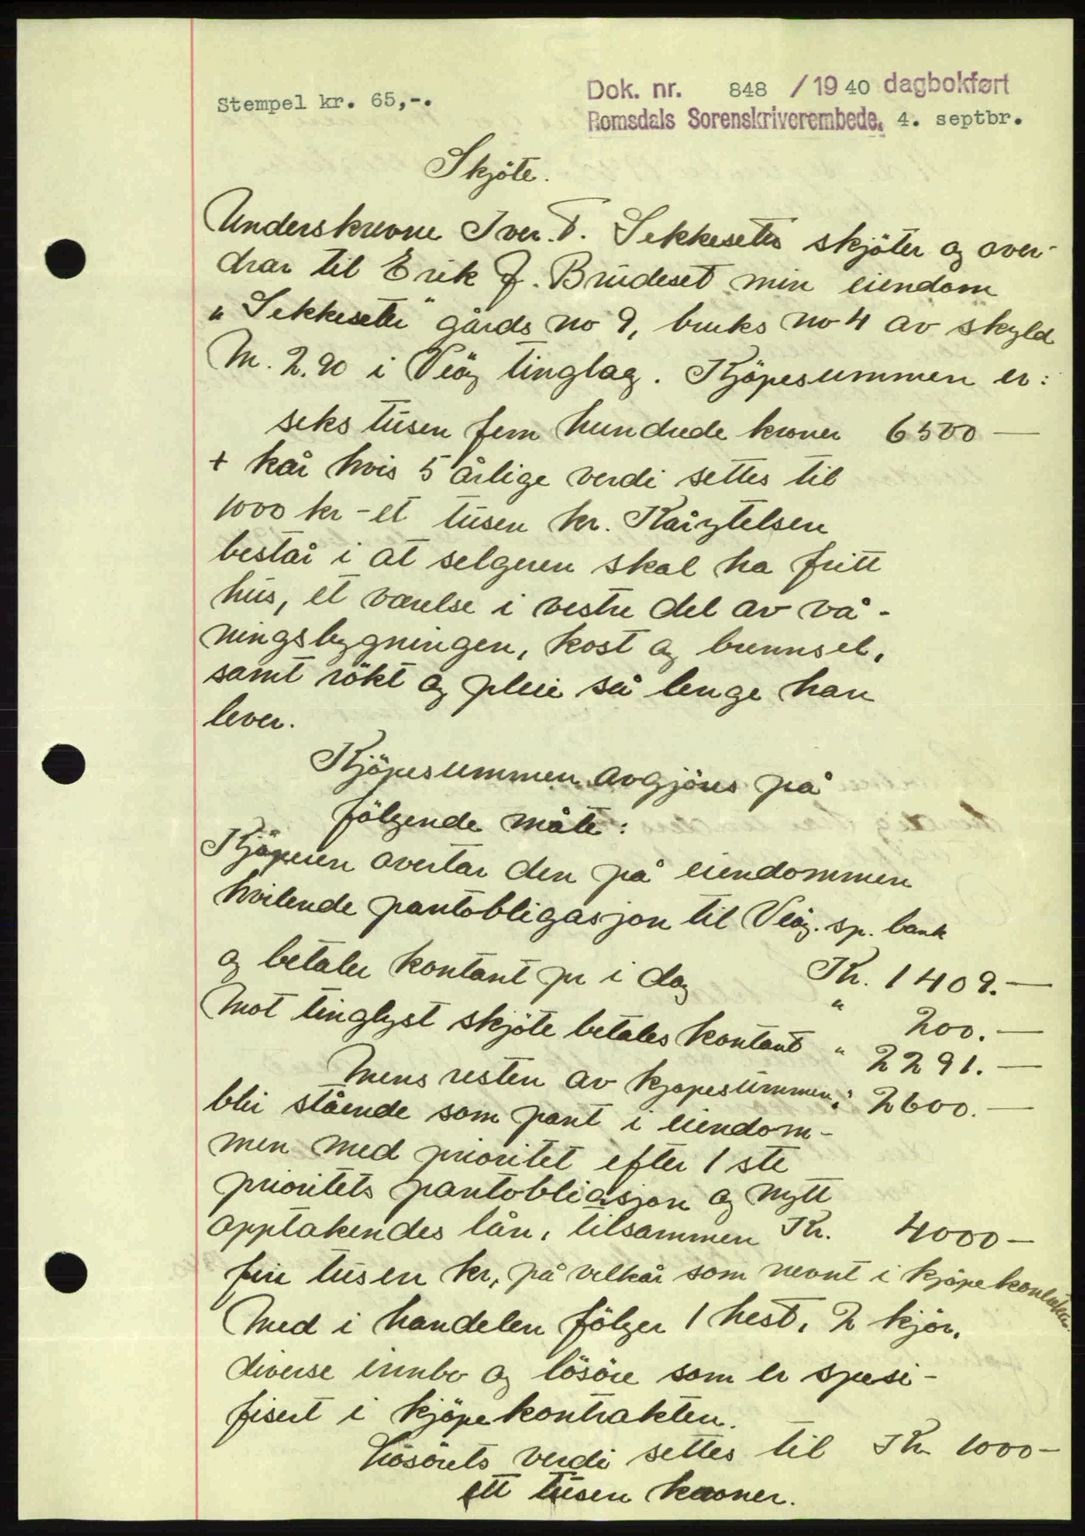 Stempel kr. 65,-.
Dok. nr. 848 / 1940 dagbokført
Romsdals Sorenskriverembede, 4. septbr.
Skjöte.
Underskrevne Iver. T. Sekkeseter skjöter og over-
drar til Erik J. Brudeset min eiendom
"Sekkeseter" gårds no 9, bruks no 4 av skyld
M. 2.90 i Veöy tinglag. Kjöpesummen er:
seks tusen fem hundrede kroner 6500 —
+ kår hvis 5 årlige verdi settes til
1000 kr - et tusen kr. Kårytelsen
består i at selgeren skal ha fritt
hus, et værelse i vestre del av vå-
ningsbygningen, kost og brennsel,
samt rökt og pleie så lenge han
lever.
Kjöpesummen avgjöres på
fölgende måte:
Kjöperen overtar den på eiendommen
hvilende pantobligasjon til Veöy. sp. bank
Kr. 1409.—
og betaler kontant pr i dag " 200.—
Mot tinglyst skjöte betales kontant " 2291.—
Mens resten av kjöpesummen, " 2600.—
blir stående som pant i eiendom-
men med prioritet efter 1ste
prioritets pantobliasjon og nytt
opptakendes lån, tilsammen Kr. 4000 —
fire tusen kr, på vilkår som nevnt i kjöpekontrakten.
Med i handelen fölger 1 hest, 2 kjör,
diverse innbo og lösöre som er spesi-
fisert i kjöpekontrakten.
Lösörets verdi settes til Kr 1000 —
ett tusen kroner.